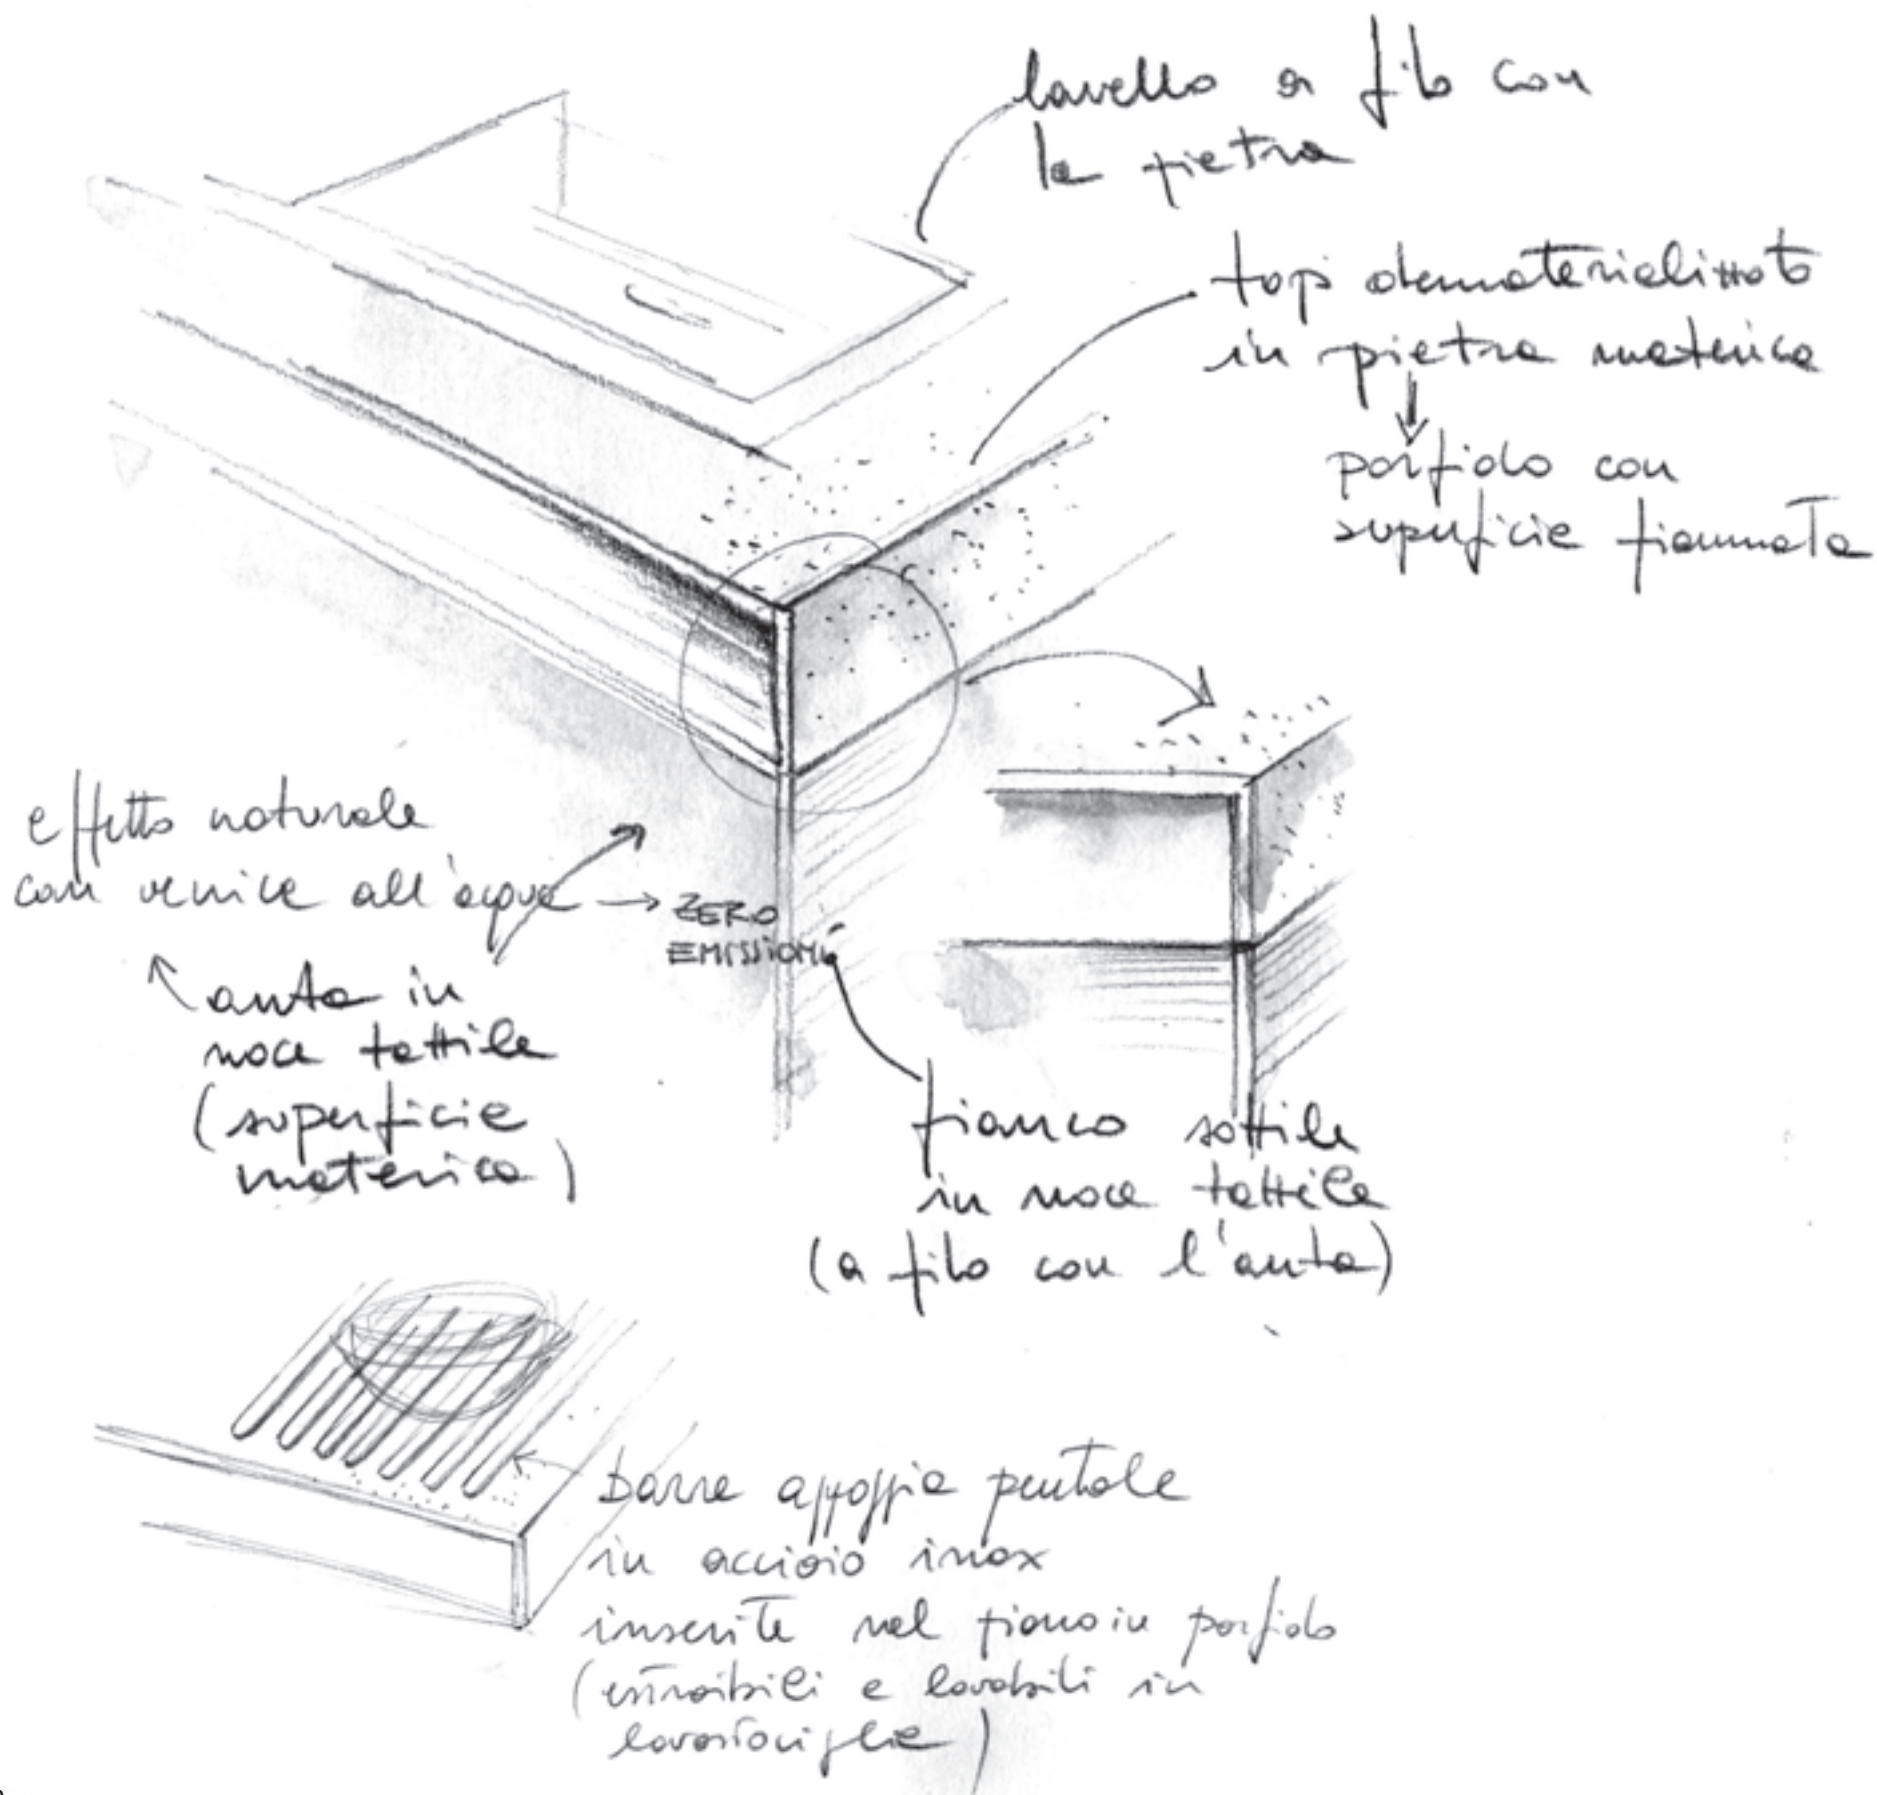 lavello a filo con
la pietra
top dematerializzato
in pietra materica
porfido con
superficie fiammata
effetto naturale
con vernice all'acqua → ZERO
EMISSIONI
anta in
noce tattile
(superficie
materica)
fianco sottile
in noce tattile
(a filo con l'anta)
barre appoggia pentole
in acciaio inox
inserite nel piano in porfido
(estraibili e lavabili in
lavastoviglie)